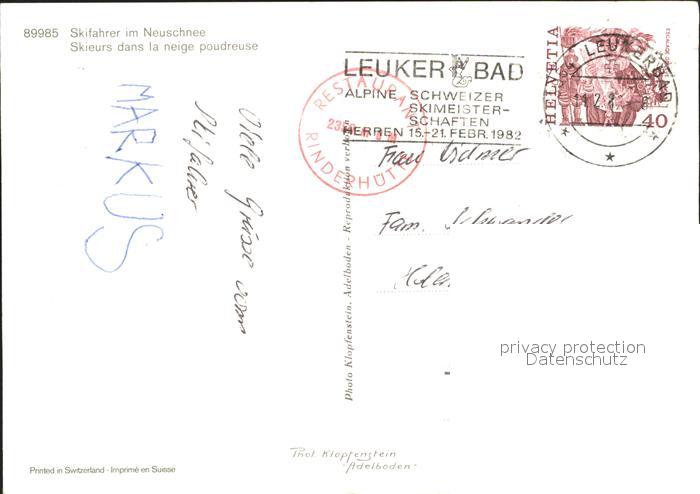 89985 Skifahrer im Neuschnee
Skieurs dans la neige poudreuse
MARKUS
Viele Grüsse vom
Skifahrer
LEUKERBAD
ALPINE SCHWEIZER
SKIMEISTER-
SCHAFTEN
HERREN 15.-21. FEBR. 1982
RESTAURANT
RINDERHÜTTE
LEUKERBAD
HELVETIA
40
Frau
Fam.
Photo Klopfenstein, Adelboden - Reproduktion verboten
privacy protection
Datenschutz
Phot. Klopfenstein
Adelboden
Printed in Switzerland - Imprimé en Suisse